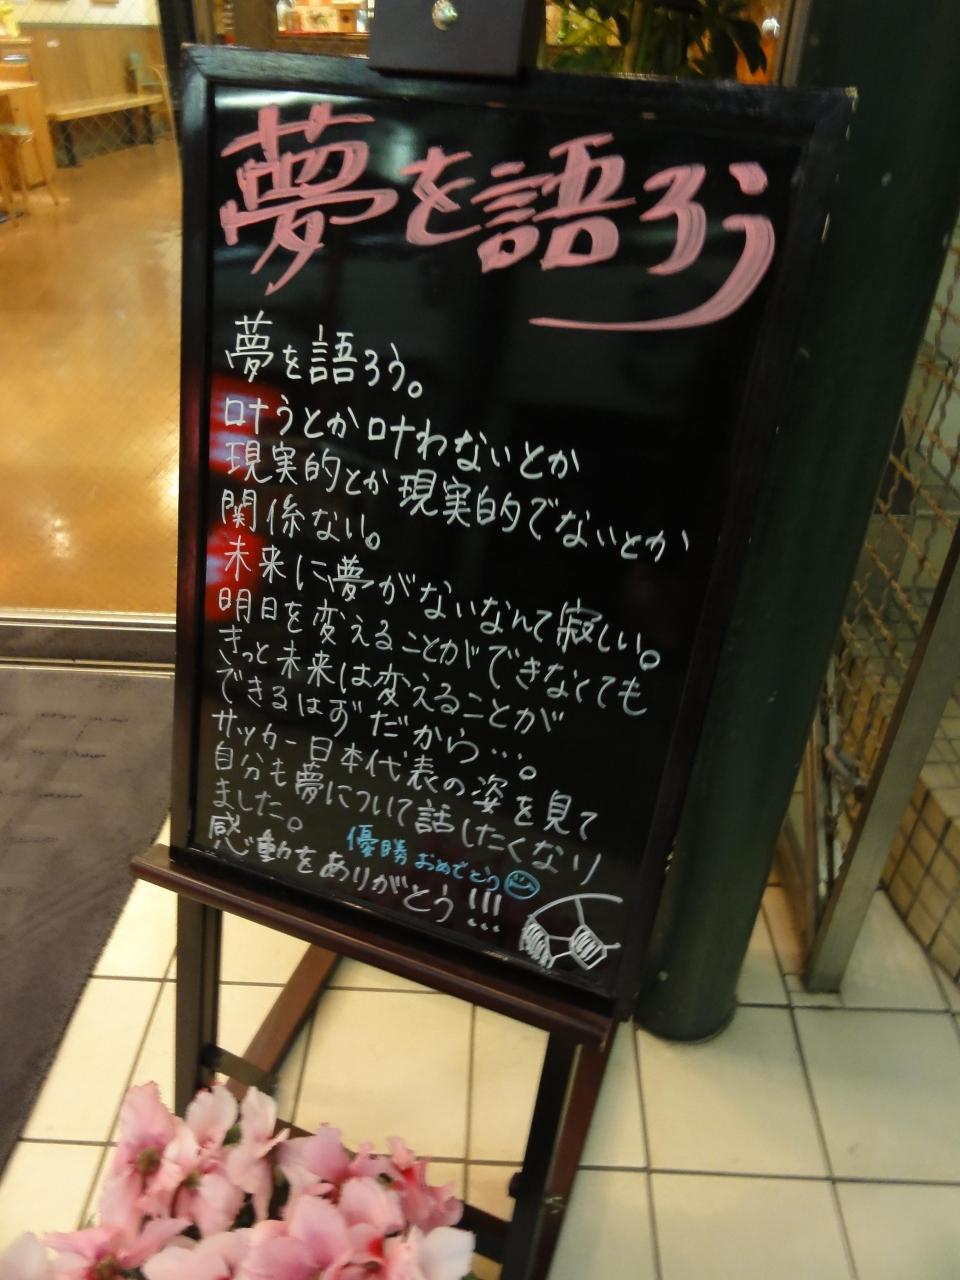 夢を語ろう
夢を語ろう。
叶うとか叶わないとか
現実的とか現実的でないとか
関係ない。
未来に夢がないなんて寂しい。
明日を変えることができなくても
きっと未来は変えることが
できるはずだから…。
サッカー日本代表の姿を見て
自分も夢について話したくなり
ました。
優勝おめでとう
感動をありがとう!!!